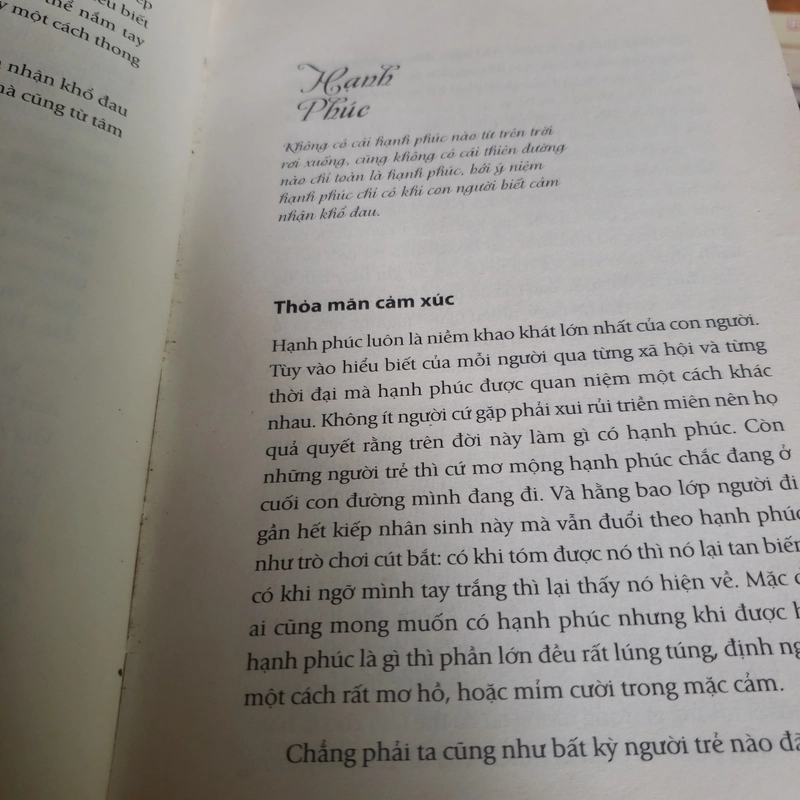 biết
thể nắm tay
một cách thong
nhận khổ đau
mà cũng từ tâm
Hạnh
Phúc
Không có cái hạnh phúc nào từ trên trời
rơi xuống, cũng không có cái thiên đường
nào chỉ toàn là hạnh phúc, bởi ý niệm
hạnh phúc chỉ có khi con người biết cảm
nhận khổ đau.
Thỏa mãn cảm xúc
Hạnh phúc luôn là niềm khao khát lớn nhất của con người.
Tùy vào hiểu biết của mỗi người qua từng xã hội và từng
thời đại mà hạnh phúc được quan niệm một cách khác
nhau. Không ít người cứ gặp phải xui rủi triền miên nên họ
quả quyết rằng trên đời này làm gì có hạnh phúc. Còn
những người trẻ thì cứ mơ mộng hạnh phúc chắc đang ở
cuối con đường mình đang đi. Và hằng bao lớp người đi
gần hết kiếp nhân sinh này mà vẫn đuổi theo hạnh phúc
như trò chơi cút bắt: có khi tóm được nó thì nó lại tan biến,
có khi ngỡ mình tay trắng thì lại thấy nó hiện về. Mặc
ai cũng mong muốn có hạnh phúc nhưng khi được
hạnh phúc là gì thì phần lớn đều rất lúng túng, định
một cách rất mơ hồ, hoặc mỉm cười trong mặc cảm.
Chẳng phải ta cũng như bất kỳ người trẻ nào